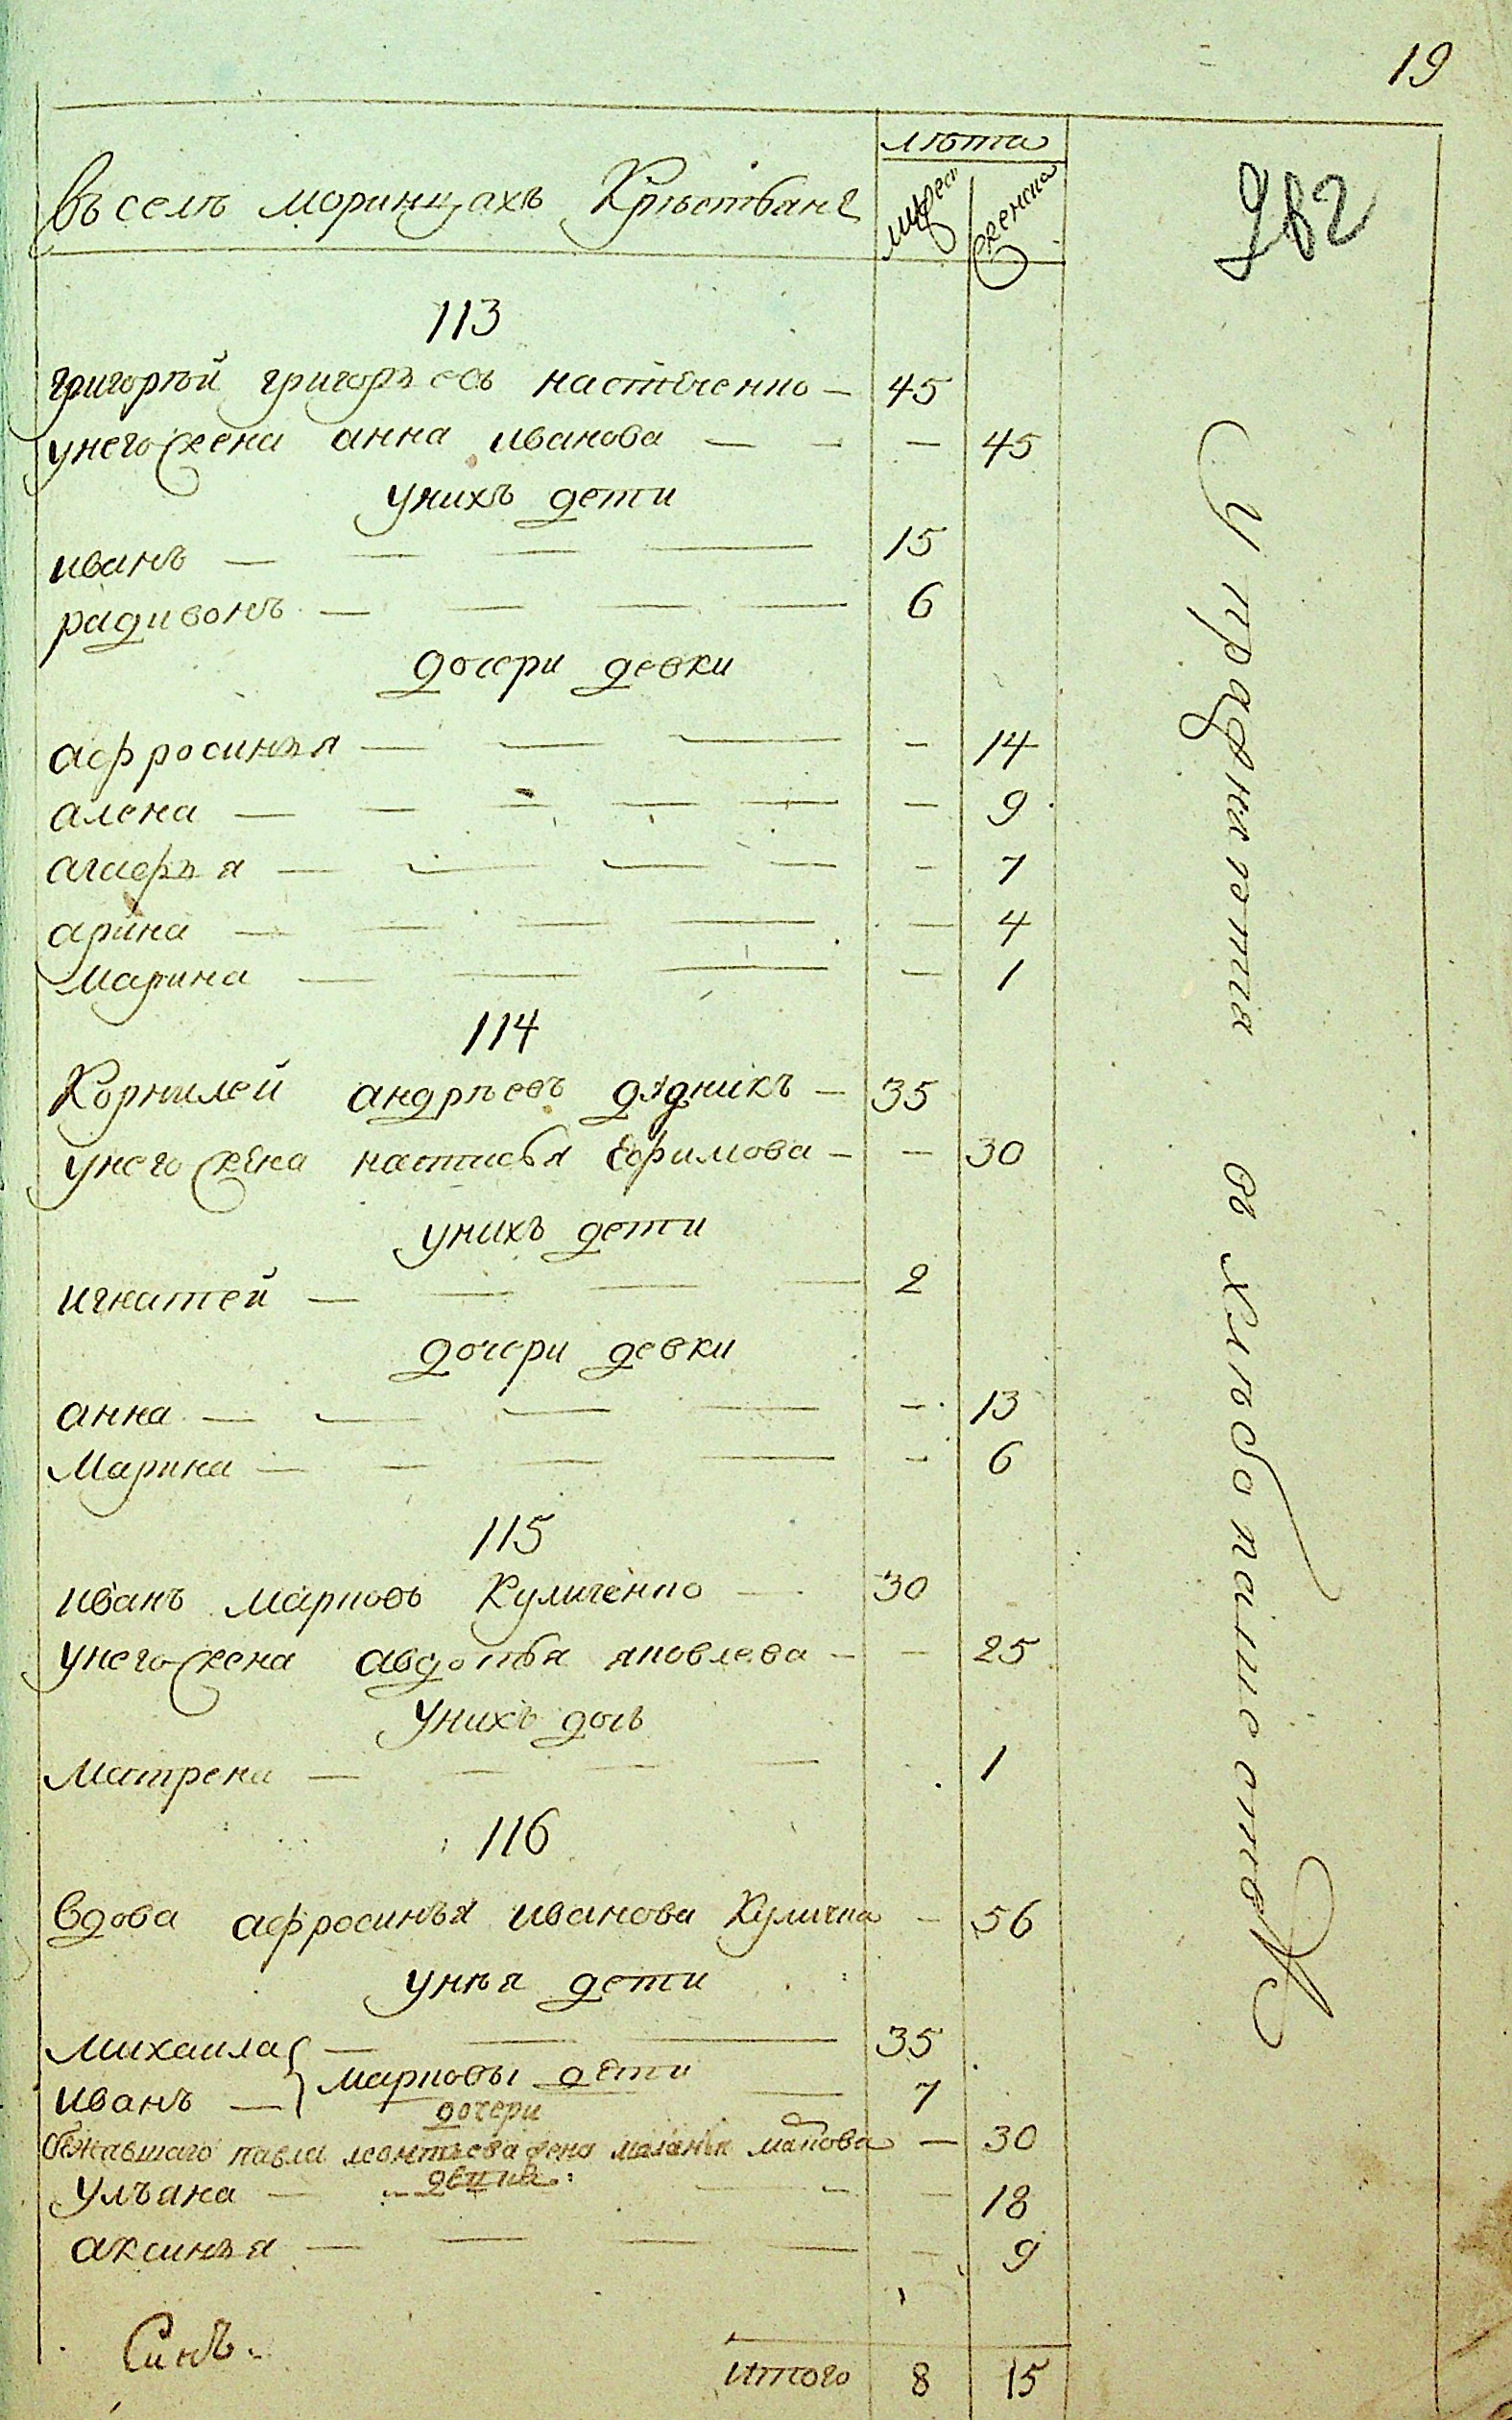 19
лѣта
въ селѣ моринцахъ Крѣстьянѣ
мужеска
женска
113
григорѣй григорьевъ настѣченко — 45
унего жена анна иванова — — — 45
унихъ дети
иванъ — — — — 15
радивонъ — — — — 6
дочери девки
афросинья — — — — 14
алена — — — — — — 9
агафья — — — — — 7
арина — — — — — 4
Марина — — — — 1
114
Корнилей андрѣевъ дядникъ — 35
унего жена настасья Ефимова — — 30
унихъ дети
игнатей — — — — 2
дочери девки
анна — — — — — 13
Марина — — — — — 6
115
иванъ марковъ Куличенко — 30
унего жена авдотья яковлева — — 25
Унихъ дочь
Матрена — — — — 1
116
вдова афросинья иванова Куличка — 56
унѣя дети
михаила — — — 35
иванъ — марковы дети — 7
дочери
бежавшаго павла леонтьева жена маланья макова — 30
Ульана — — девка: — — — 18
аксинья — — — — — 9
итого 8 15
упражнѣютца въ хлѣбопашествѣ